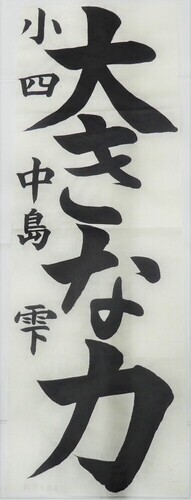 大きな力
小四 中島 雫